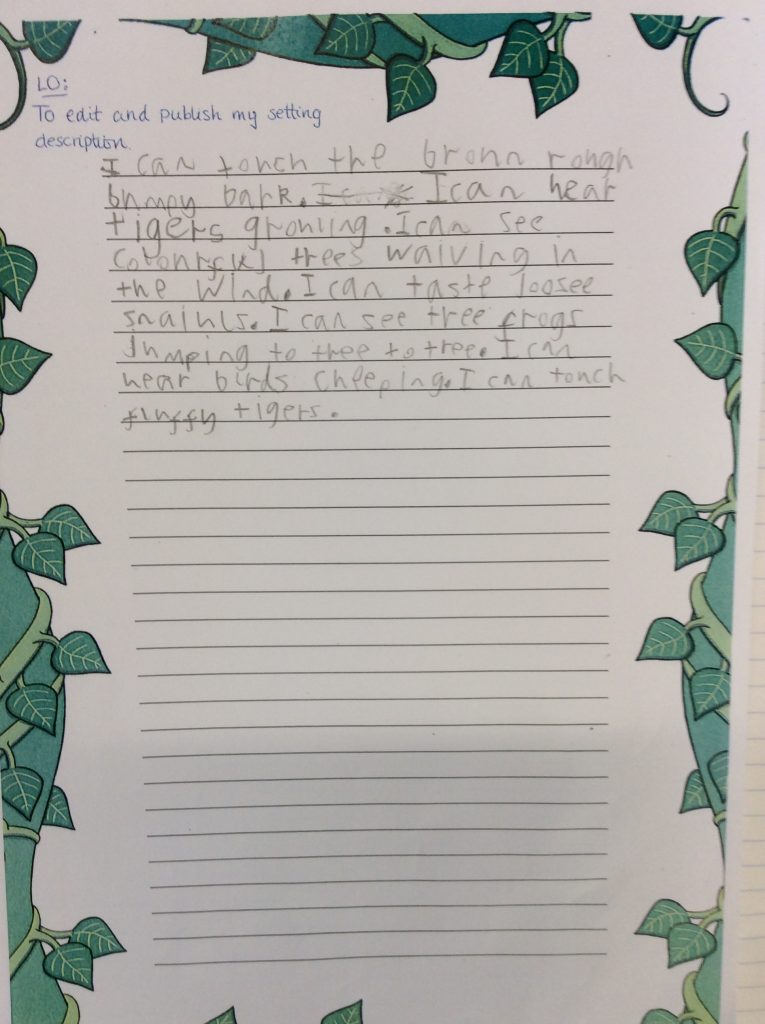 LO:
To edit and publish my setting
description.
I can touch the bronn rough
bumpy bark. I can hear
tigers growling. I can see
trees waiving in
the wind. I can taste loosee
I can see tree frogs
Jumping to tree to tree. I can
hear birds cheeping. I can touch
fluffy tigers.